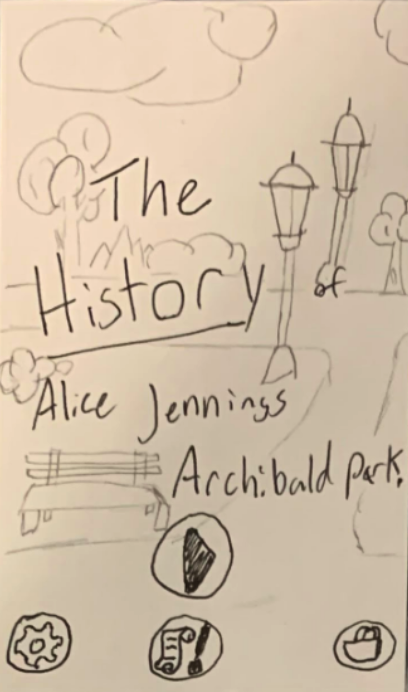 The
History of
Alice Jennings
Archibald Park.